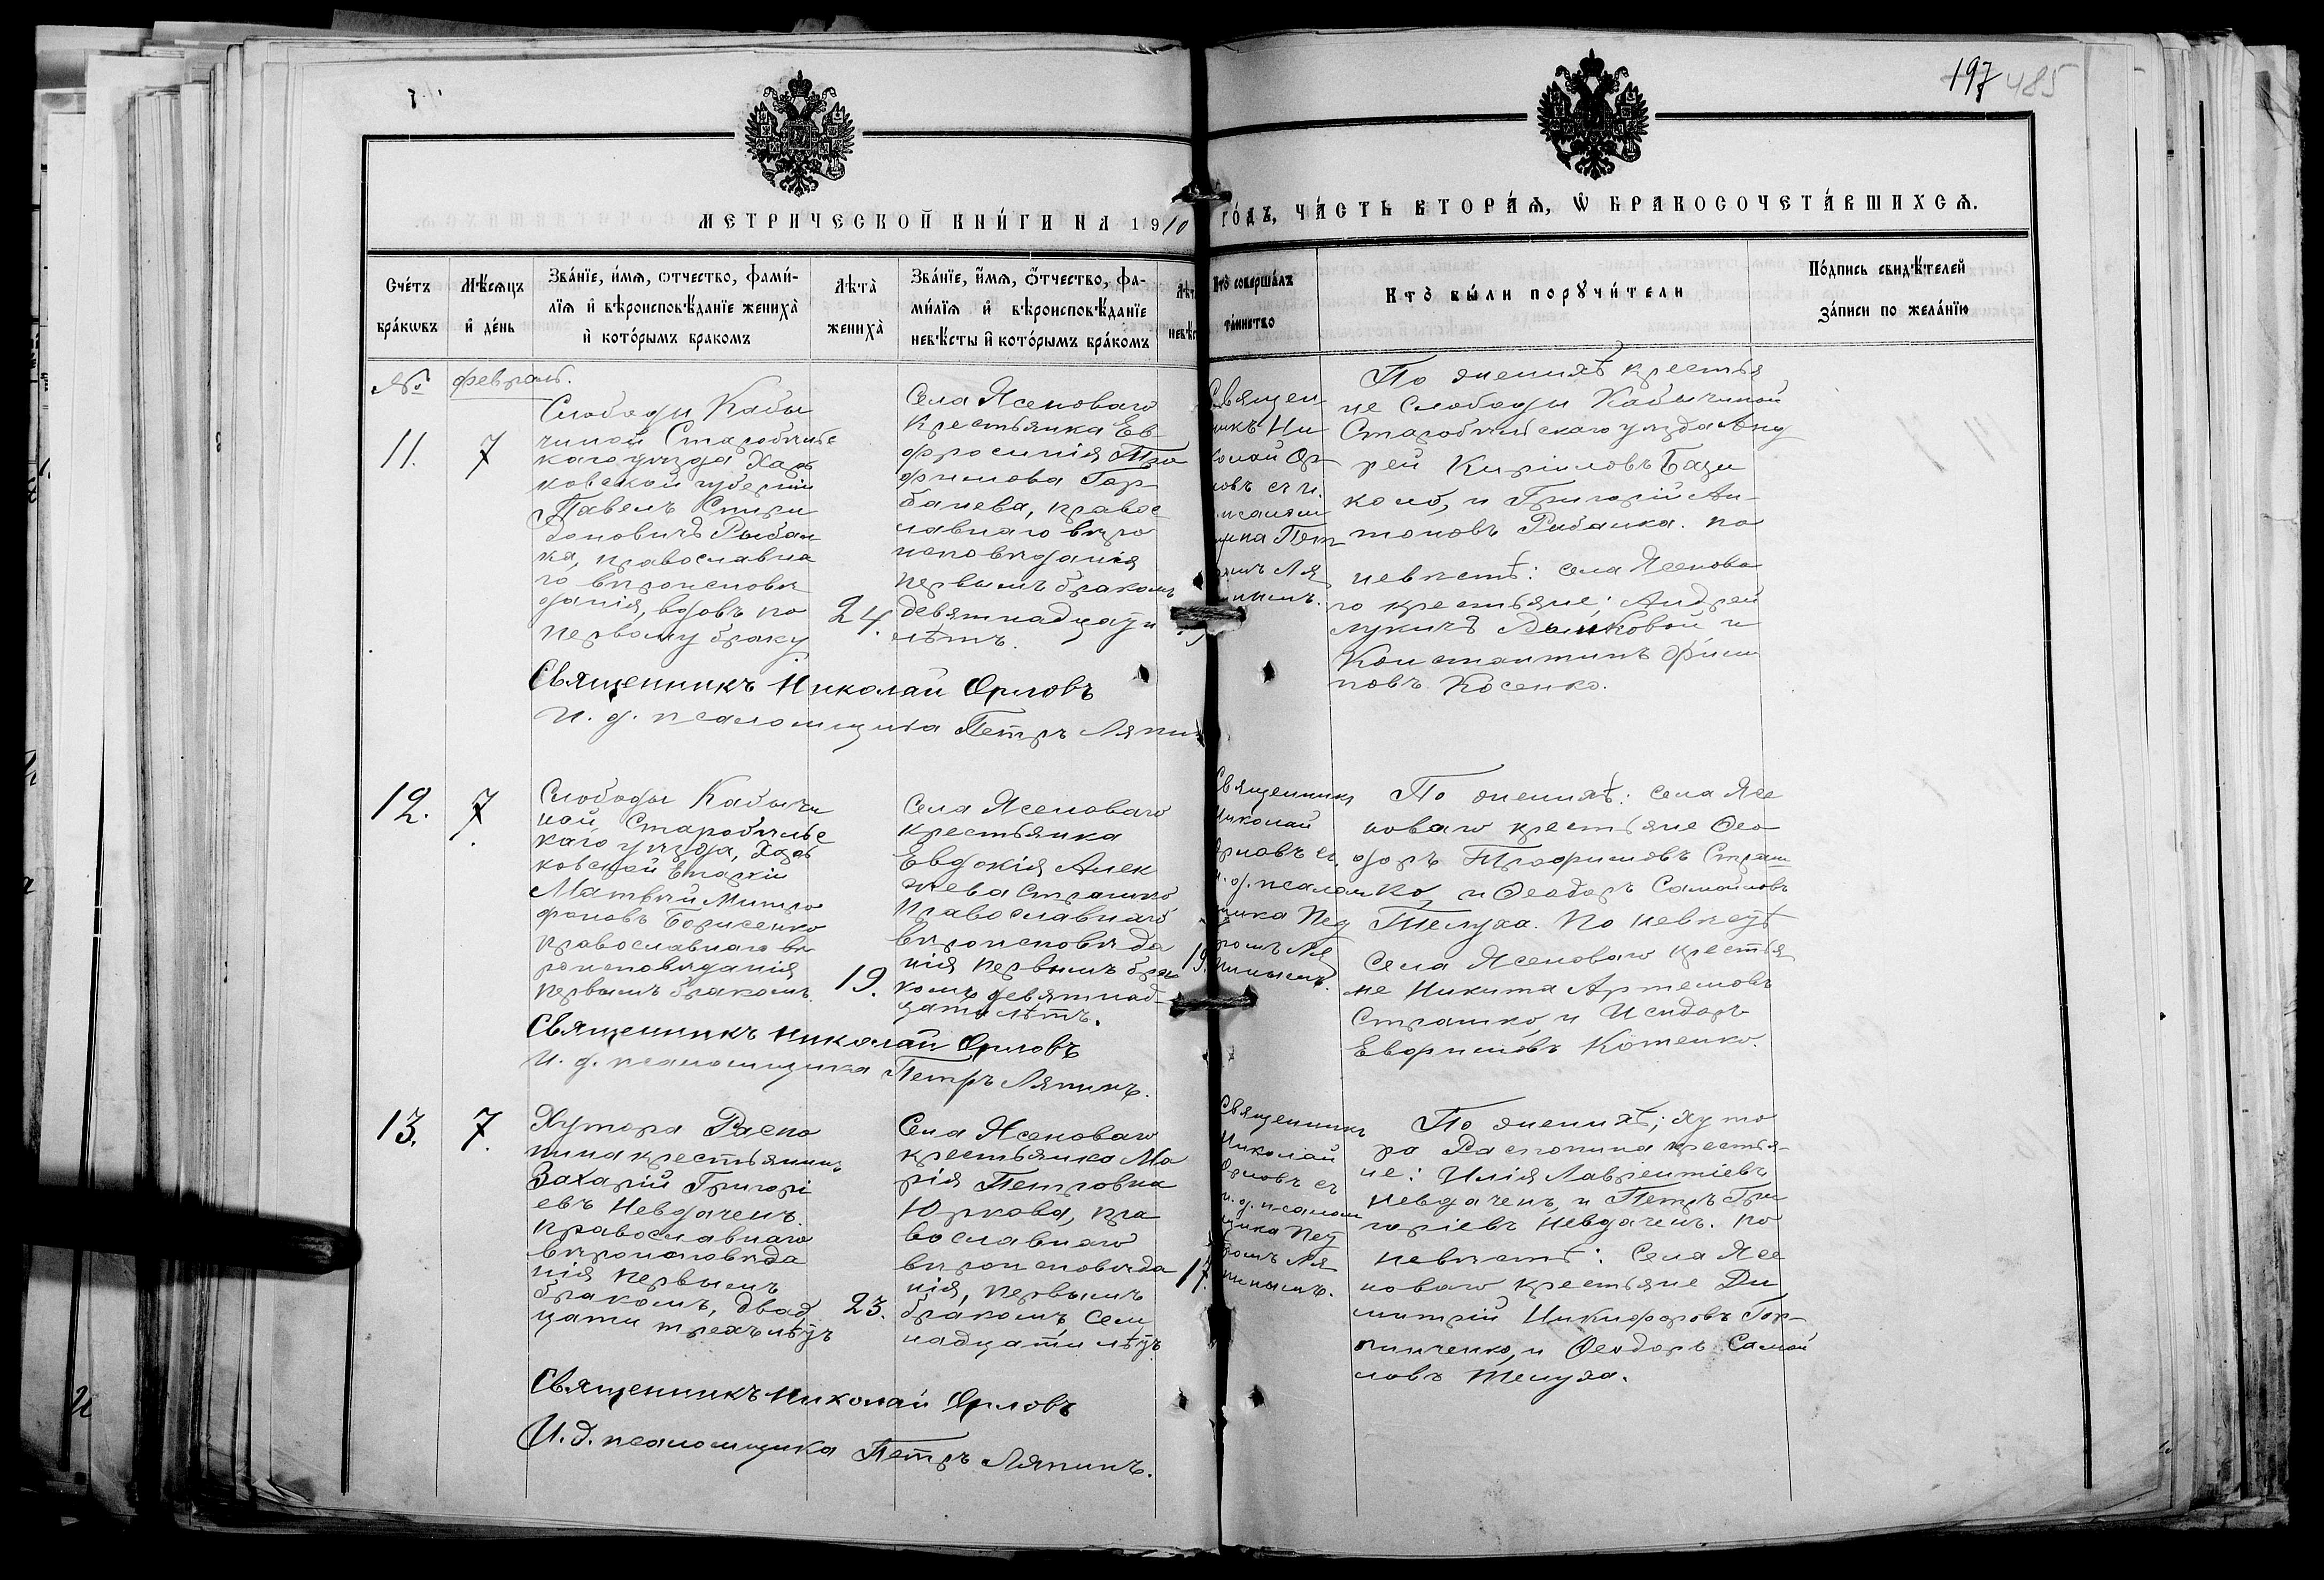 197 485
МЕТРИЧЕСКОЙ КНИ́ГИ НА 1910
ГО́ДЪ, ЧА́СТЬ ВТОРА́Ѧ, Ѡ БРАКОСОЧЕТА́ВШИХСѦ.
Сче́тъ бра́кѡвъ
Мѣ́сѧцъ и҆ де́нь
Зва́нїе, и҆́мѧ, ѻтчество, фами́-
лїѧ и҆ вѣроисповѣ́данїе жениха̀
и҆ кото́рымъ бракомъ
Лѣта̀ жениха̀
Зва́нїе, и҆́мѧ, ѻ҆́тчество, фа-
ми́лїѧ и҆ вѣроисповѣ́данїе
невѣ́сты и҆ кото́рымъ бра́комъ
Кто̀ соверша́лъ
та́инство
Кто̀ бы́ли порꙋчи́тели
По́дпись свидѣ́телей
за́писи по жела́нїю
№ февраль.
11. 7
Слободы Кабы
чиной Старобѣльс
каго уѣзда Харь
ковской губерніи
Павелъ Спири
доновичъ Рыбал
ка, православна
го вѣроисповѣ
данія, вдовъ по
первому браку
24.
Села Ясеноваго
Крестьянка Ев
фросинія Тро
фимова Гор
банева, правос
лавнаго вѣро
исповѣданія
первымъ бракомъ
девятнадцати
лѣтъ.
Священ
никъ Ни
колай Ор
ловъ съ и.
псалом
щика Пет
ромъ Ля
пинымъ.
По женихѣ крестья
не Слободы Кабычиной
Старобѣльскаго уѣзда Анд
рей Кириловъ
и Григорій Ан-
тоновъ Рибалка. по
невѣстѣ: села Ясенова
го крестьяне; Андрей
Лукичъ и
Константинъ Фили
повъ Косенко.
Священникъ Николай Орловъ
И. д. псаломщика Петръ Ляпинъ
12. 7.
Слободы Кабычи
ной Старобѣльс
каго уѣзда, Харь
ковской Епархіи
Матвѣй Митро
фановъ Борисенко
православнаго вѣ
роисповѣданія
первымъ бракомъ.
19.
Села Ясеноваго
крестьянка
Евдокія Алек
сѣева Страшко
Православнаго
вѣроисповѣда
нія первымъ бра
комъ девятнад-
цати лѣтъ.
19.
Священникъ
Николай
Орловъ съ
и. д. псалом
щика Пет
ромъ Ля
пинымъ.
По женихѣ: села Ясе
новаго крестьяне Ѳео
доръ Трофимовъ Страш
ко, и Ѳеодоръ Самойловъ
Шелуха. По невѣстѣ
Села Ясеноваго крестья
не Никита Артемовъ
Страшко, и Исидоръ
Котенко.
Священникъ Николай Орловъ
И. д. псаломщика Петръ Ляпинъ.
13. 7.
Хутора Распо
пина крестьянинъ
Захарій Григорі
евъ Невдачень.
православнаго
вѣроисповѣда
нія первымъ
бракомъ, двад
цати трехъ лѣтъ
23.
Села Ясеноваго
крестьянка Ма
рія Петровна
Юркова, пра
вославнаго
вѣроисповѣда
нія, первымъ
бракомъ Сем
надцати лѣтъ.
17.
Священникъ
Николай
Орловъ съ
и. д. псалом
щика Пет
ромъ Ля
пинымъ.
По женихѣ; хуто
ра Распопина крестья-
не: Илія Лаврентіевъ
Невдачень, и Петръ Гри
горіевъ Невдачень. по
невѣстѣ: Села Ясе
новаго крестьяне Ди
митрій Никифоровъ Гор-
пинченко, и Ѳеодоръ Самой
ловъ Шелуха.
Священникъ Николай Орловъ
И. д. псаломщика Петръ Ляпинъ.